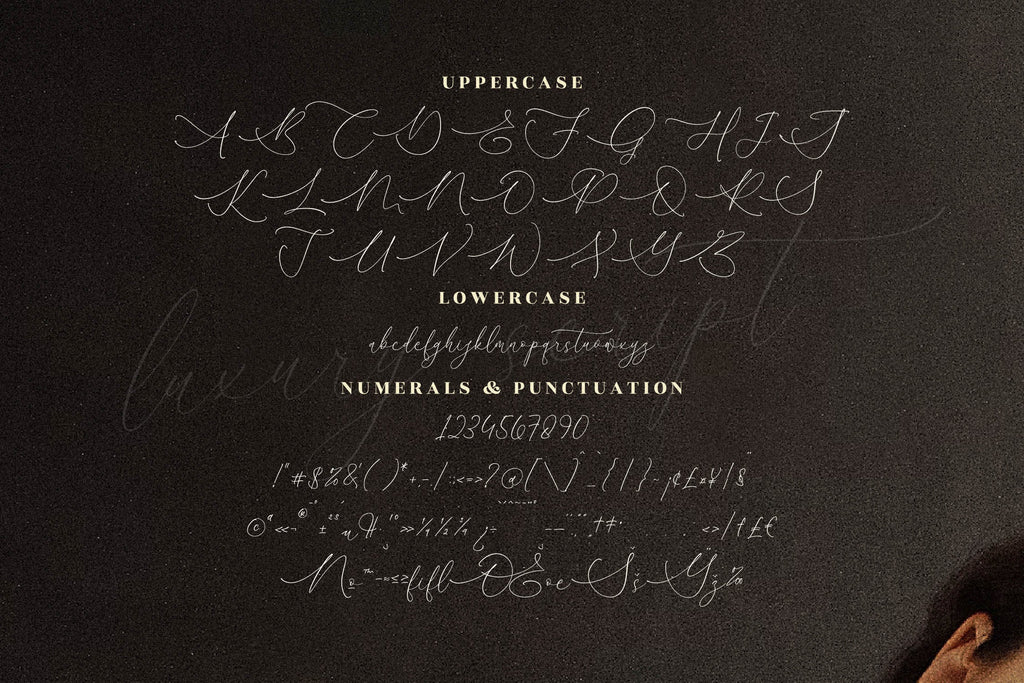 UPPERCASE
A B C D E F G H I J
K L M N O P Q R S
T U V W X Y Z
luxury script
LOWERCASE
abcdefghijklmnopqrstuvwxyz
NUMERALS & PUNCTUATION
1234567890
!"#$%&'()*+,-./:;<=>?@[\]^_`{|}~¡¢£¤¥¦§¨
©ª«¬®¯°±²³´µ¶¸¹º»¼½¾¿÷–—‘’‚“”„†‡•‹›⁄ƒ₤€
№™−≈≤≥fiflŒĚoeŠšŸž‰